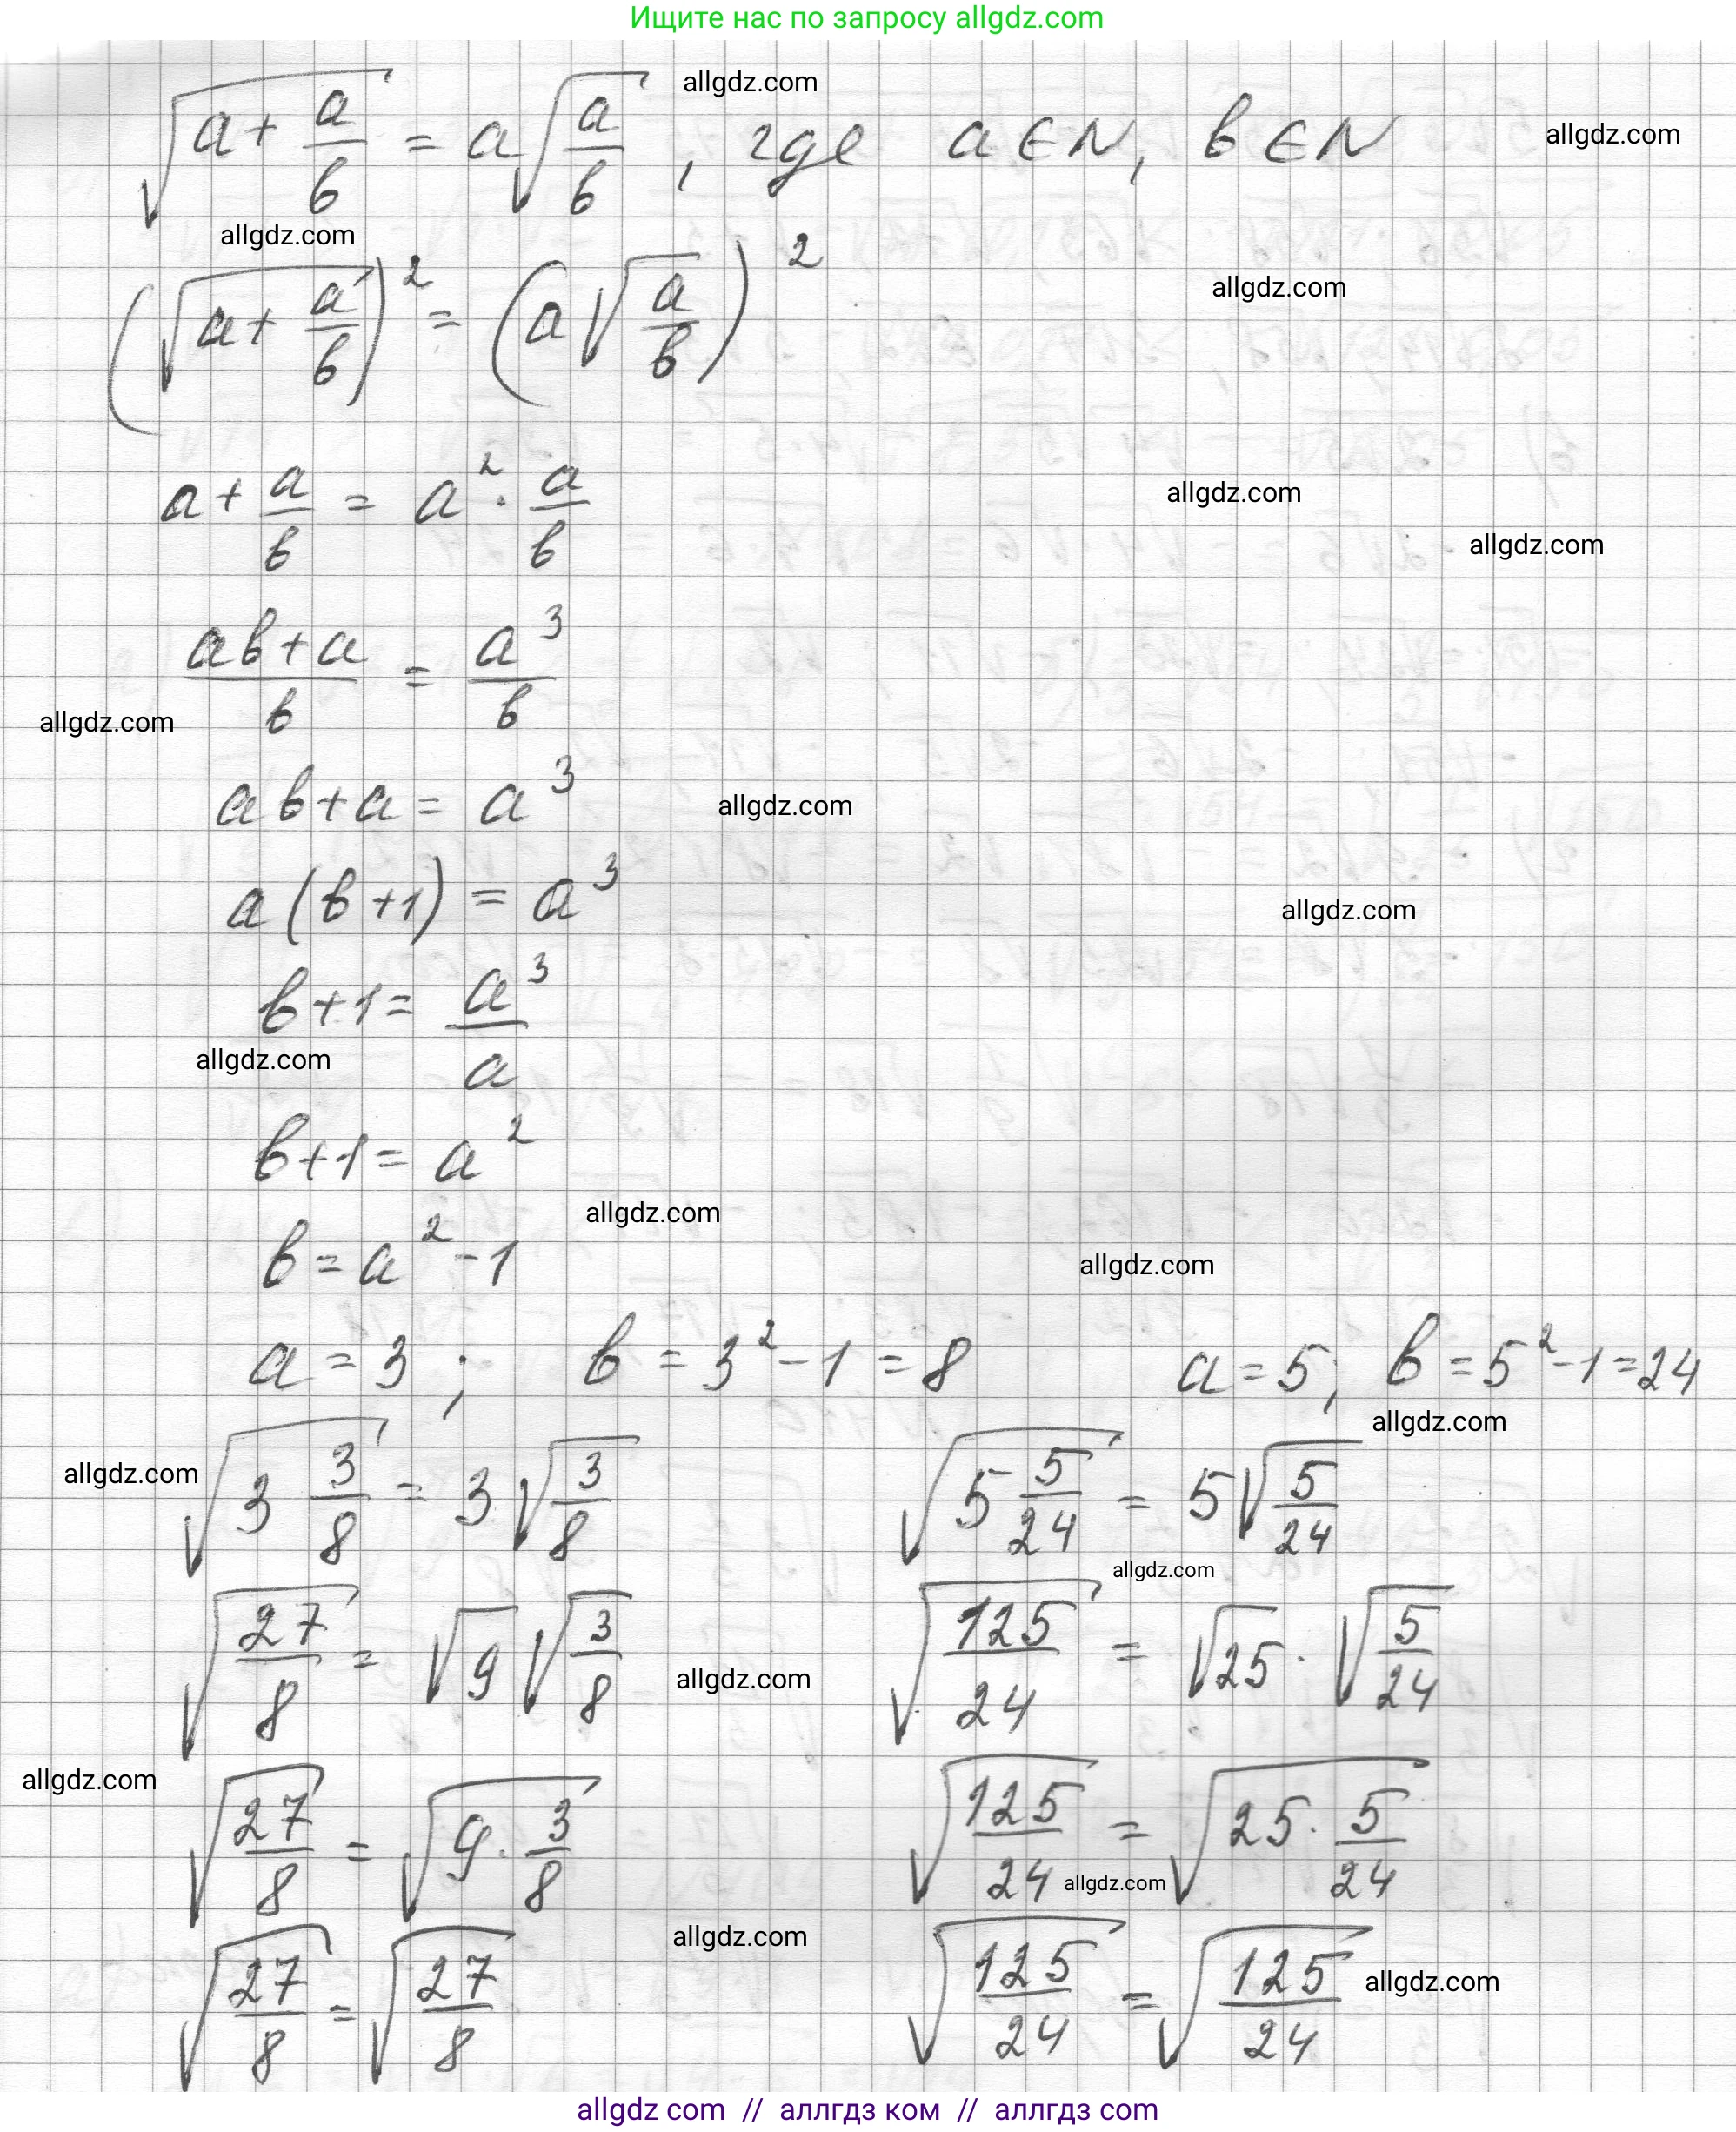 Ищите нас по запросу allgdz.com
allgdz.com
√(a + a/b) = a√(a/b), где a ∈ N, b ∈ N
allgdz.com
allgdz.com
(√(a + a/b))² = (a√(a/b))²
allgdz.com
a + a/b = a² · a/b
allgdz.com
allgdz.com
(ab + a)/b = a³/b
allgdz.com
ab + a = a³
allgdz.com
a(b + 1) = a³
allgdz.com
b + 1 = a³/a
allgdz.com
b + 1 = a²
allgdz.com
b = a² - 1
allgdz.com
a = 3; b = 3² - 1 = 8 a = 5; b = 5² - 1 = 24
allgdz.com
allgdz.com
√(3 3/8) = 3√(3/8) √(5 5/24) = 5√(5/24)
allgdz.com
√(27/8) = √9 √(3/8) √(125/24) = √25 · √(5/24)
allgdz.com
allgdz.com
√(27/8) = √(9 · 3/8) √(125/24) = √(25 · 5/24)
allgdz.com
allgdz.com
√(27/8) = √(27/8) √(125/24) = √(125/24)
allgdz.com
allgdz com // аллгдз ком // аллгдз com